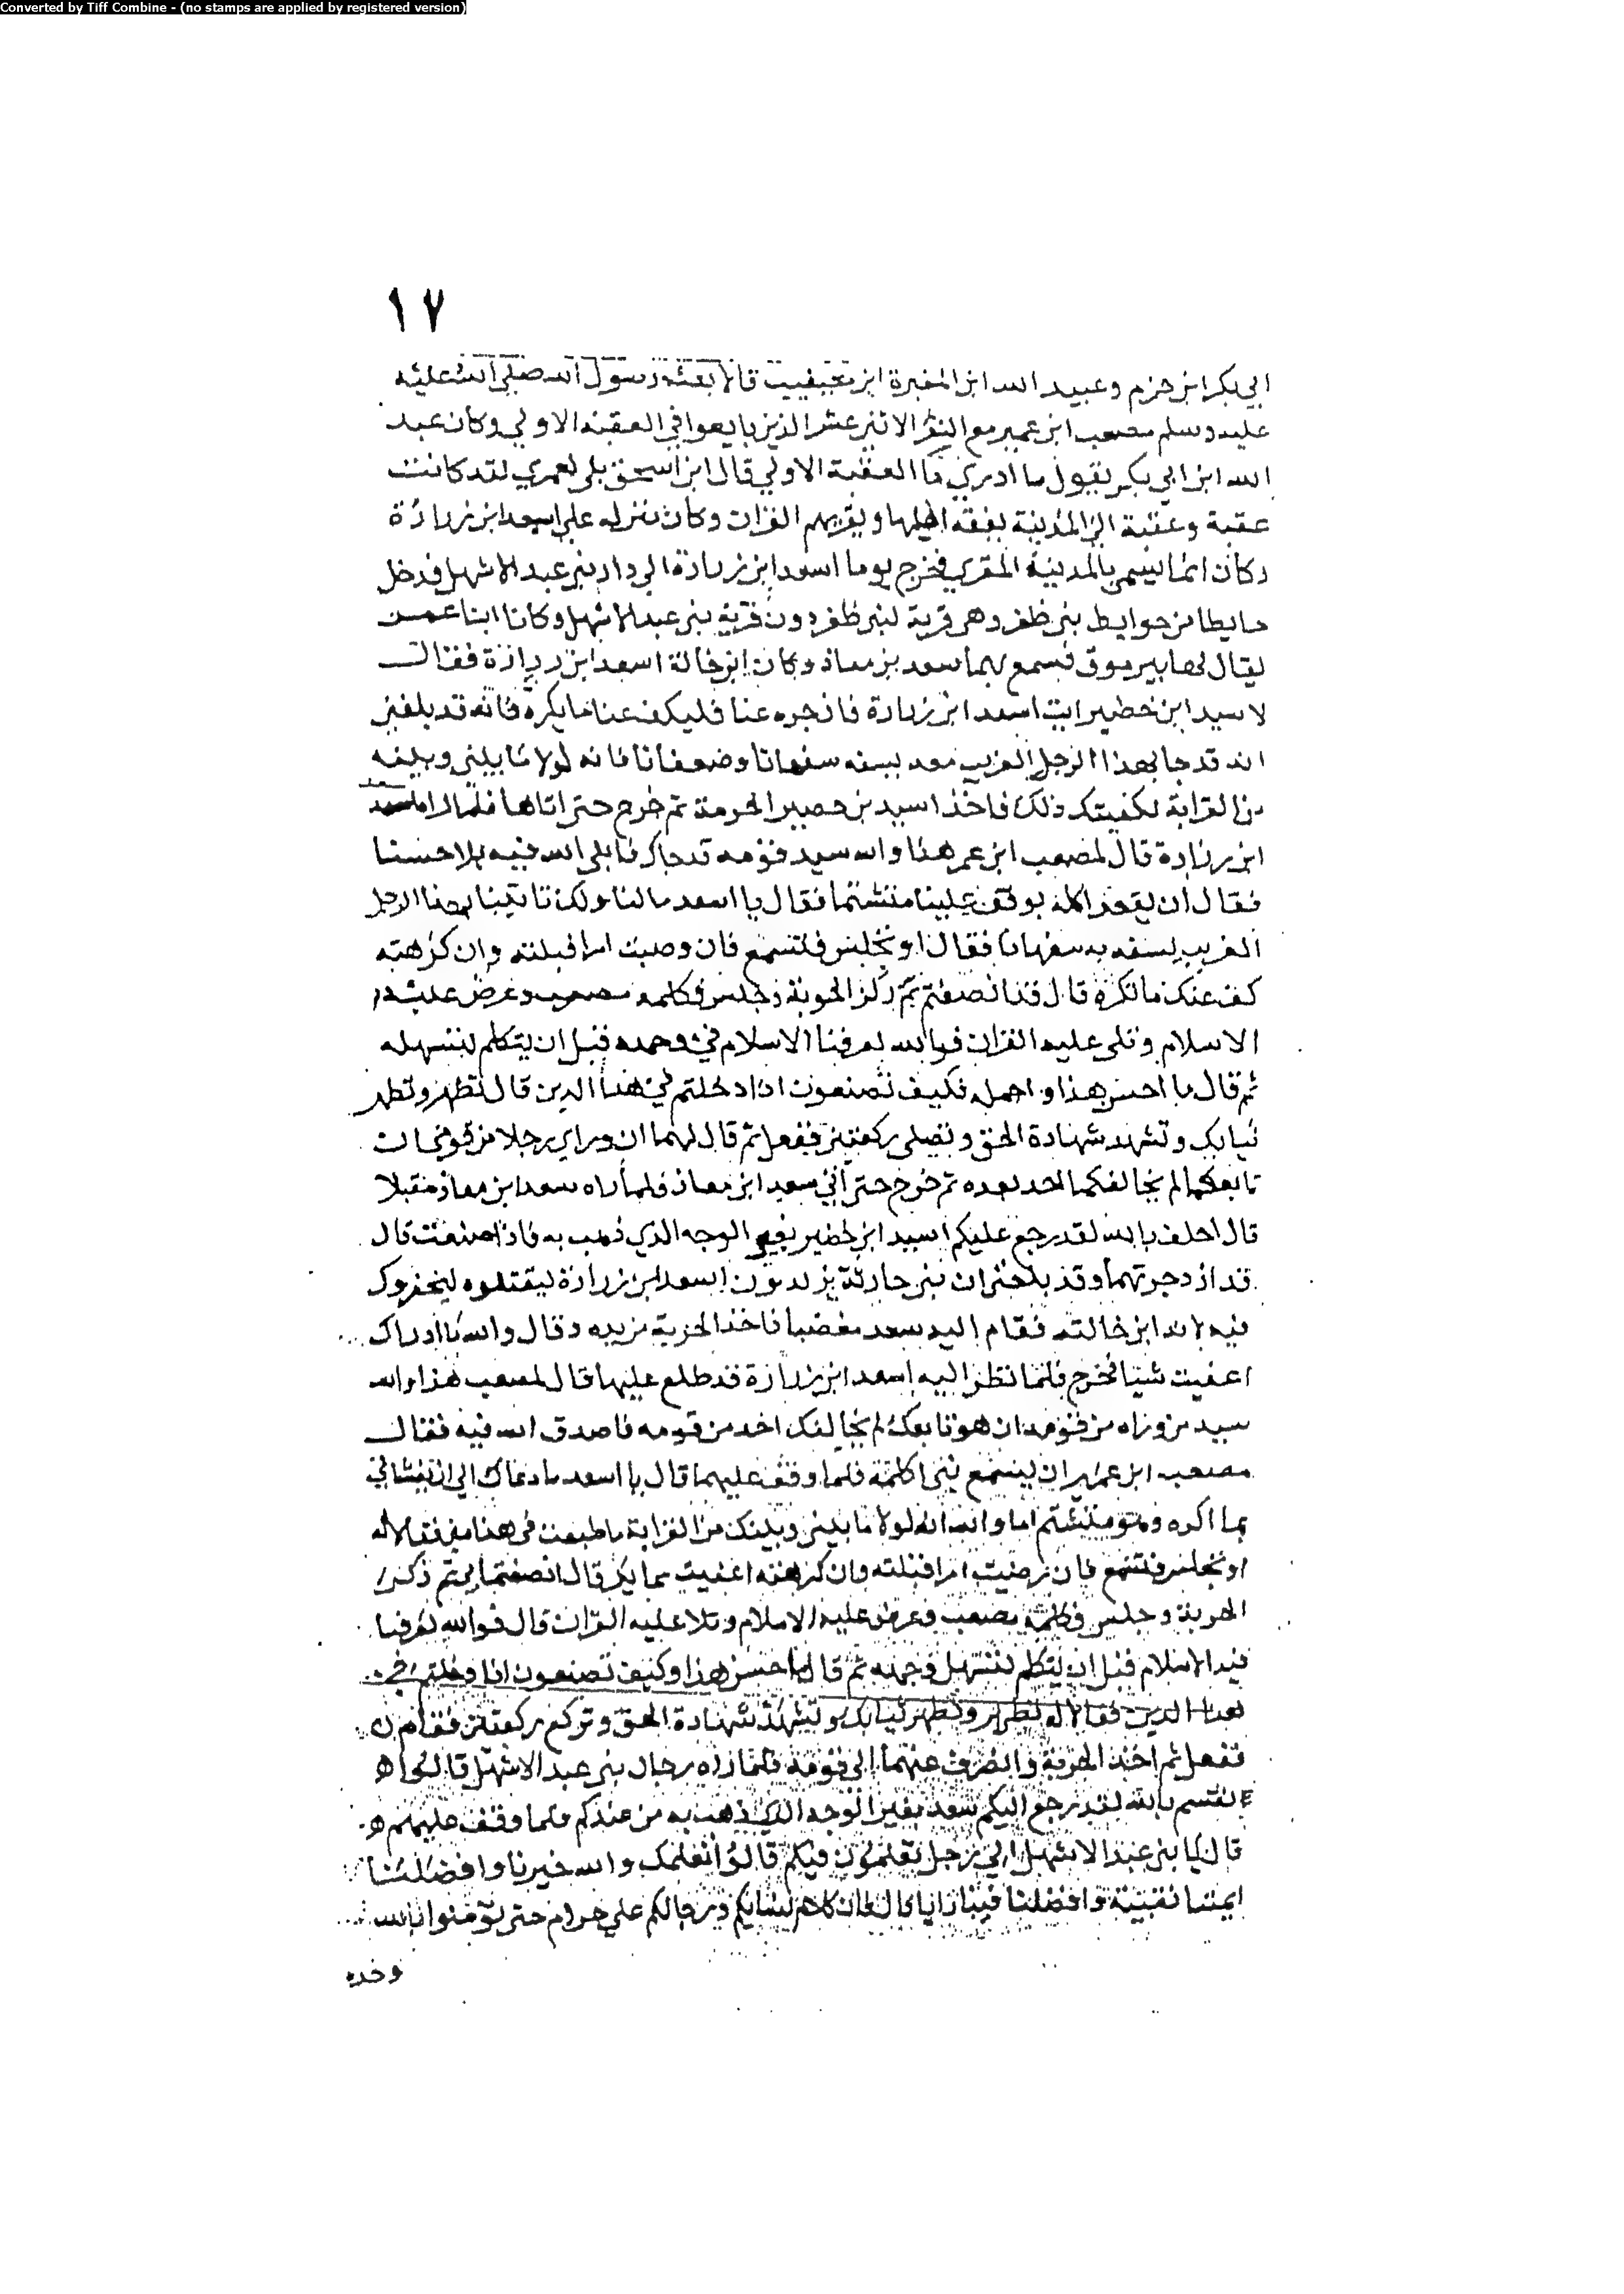 Converted by Tiff Combine - (no stamps are applied by registered version)
١٧
ابي بكر ابن حزم وعبيد الله ابن المغيرة ابن معيقيب قالا بعث رسول الله صلى الله عليه
عليه وسلم مصعب ابن عمير مع النفر الاثني عشر الذين بايعوا في العقبة الاولي وكان عبد
الله ابن ابي بكر يقول ما ادري ما العقبة الاولي قال ابن اسحق بلي لعمري لقد كانت
عقبة وعقبة الي المدينة يفقه اهلها ويقريهم القران وكان منزله علي اسعد ابن زرارة
وكان انما يسمي بالمدينة المقري فخرج يوما اسعد ابن زرارة الي دار بني عبد الاشهل فدخل
حايطا من حوايط بني ظفر وهي قرية لبني ظفر دون قرية بني عبد الاشهل وكانا ابنا عمـ
يقال لها بير موق فسمع بهما سعد بن معاذ وكان ابن خالة اسعد ابن زرارة فقال
لاسيد ابن حضير ايت اسعد ابن زرارة فازجره عنا فليكف عنا ما يكره فانه قد بلغني
انه قد جا بهذا الرجل الغريب معه يسفه سفهانا وضعفانا فانه لولا ما بيني وبينه
من القرابة لكفيتك ذلك فاخذ اسيد بن حضير الحربة ثم خرج حتي اتاهما فلما راه اسعد
ابن زرارة قال لمصعب ابن عمير هذا والله سيد قومه قد جاك فابلي الله فيه بلا حسنا
فقال ان يقعد اكلمه فوقف علينا متشتما فقال يا اسعد مالنا ولك تاتينا بهذا الرجل
الغريب يسفه به سفهانا فقال او تجلس فتسمع فان رضيت امرا قبلته وان كرهته
كف عنك ما تكره قال قد انصفتم ثم ركز الحربة وجلس فكلمه مصعب وعرض عليه
الاسلام وتلي عليه القران فوالله لعرفنا الاسلام في وجهه قبل ان يتكلم لتسهله
ثم قال ما احسن هذا واجمله فكيف تصنعون اذا دخلتم في هذا الدين قال تطهر وتطهر
ثيابك وتشهد شهادة الحق وتصلي ركعتين ففعل ثم قال لهما ان وراي رجلا من قومي ان
تابعكما لم يخالفكما احد بعده ثم خرج حتي اتي سعد ابن معاذ فلما راه سعد ابن معاذ مقبلا
قال احلف بالله لقد رجع عليكم اسيد ابن حضير بغير الوجه الذي ذهب به فاذا صنعت قال
قد ازدجرتهما وقد بلغني ان بني حارثة يريدون اسعد ابن زرارة ليقتلوه ليخفروك
فيه لانه ابن خالته فقام اليه سعد مغضبا فاخذ الحربة من يده وقال والله ما اراك
اغنيت شيا فخرج فلما نظر اليه اسعد ابن زرارة قد طلع عليهما قال لمصعب هذا والله
سيد من وراه من قومه ان هو تابعك لم يخالفك احد من قومه فاصدق الله فيه فقال
مصعب ابن عمير ان يسمع مني اكلمه فلما وقف عليهما قال يا اسعد ما دعاك الي ان تغشاني
بما اكره وهو متشتم اما والله انه لولا ما بيني وبينك من القرابة ما طمعت في هذا مني فقالا له
او تجلس فتسمع فان رضيت امرا قبلته وان كرهته اعفيت مما يكره قال انصفتماني ثم ركز
الحربة وجلس فكلمه مصعب وعرض عليه الاسلام وتلا عليه القران قال فوالله لعرفنا
فيه الاسلام قبل ان يتكلم لتسهل وجهه ثم قال ما احسن هذا وكيف تصنعون اذا دخلتم في
هذا الدين فقالا له تطهر وتطهر ثيابك وتشهد شهادة الحق وتركع ركعتين فقام
ففعل ثم اخذ الحربة وانصرف عنهما الي قومه فلما راه رجال بني عبد الاشهل قالوا
نقسم بالله لقد رجع اليكم سعد بغير الوجه الذي ذهب به من عندكم فلما وقف عليهم
قال يا بني عبد الاشهل اي رجل تعلمون فيكم قالوا نعلمك والله خيرنا وافضلنا
ايمننا نقيبة وافضلنا فينا رايا قال فان كلام نسايكم ورجالكم علي حرام حتي تومنوا بالله
وحده